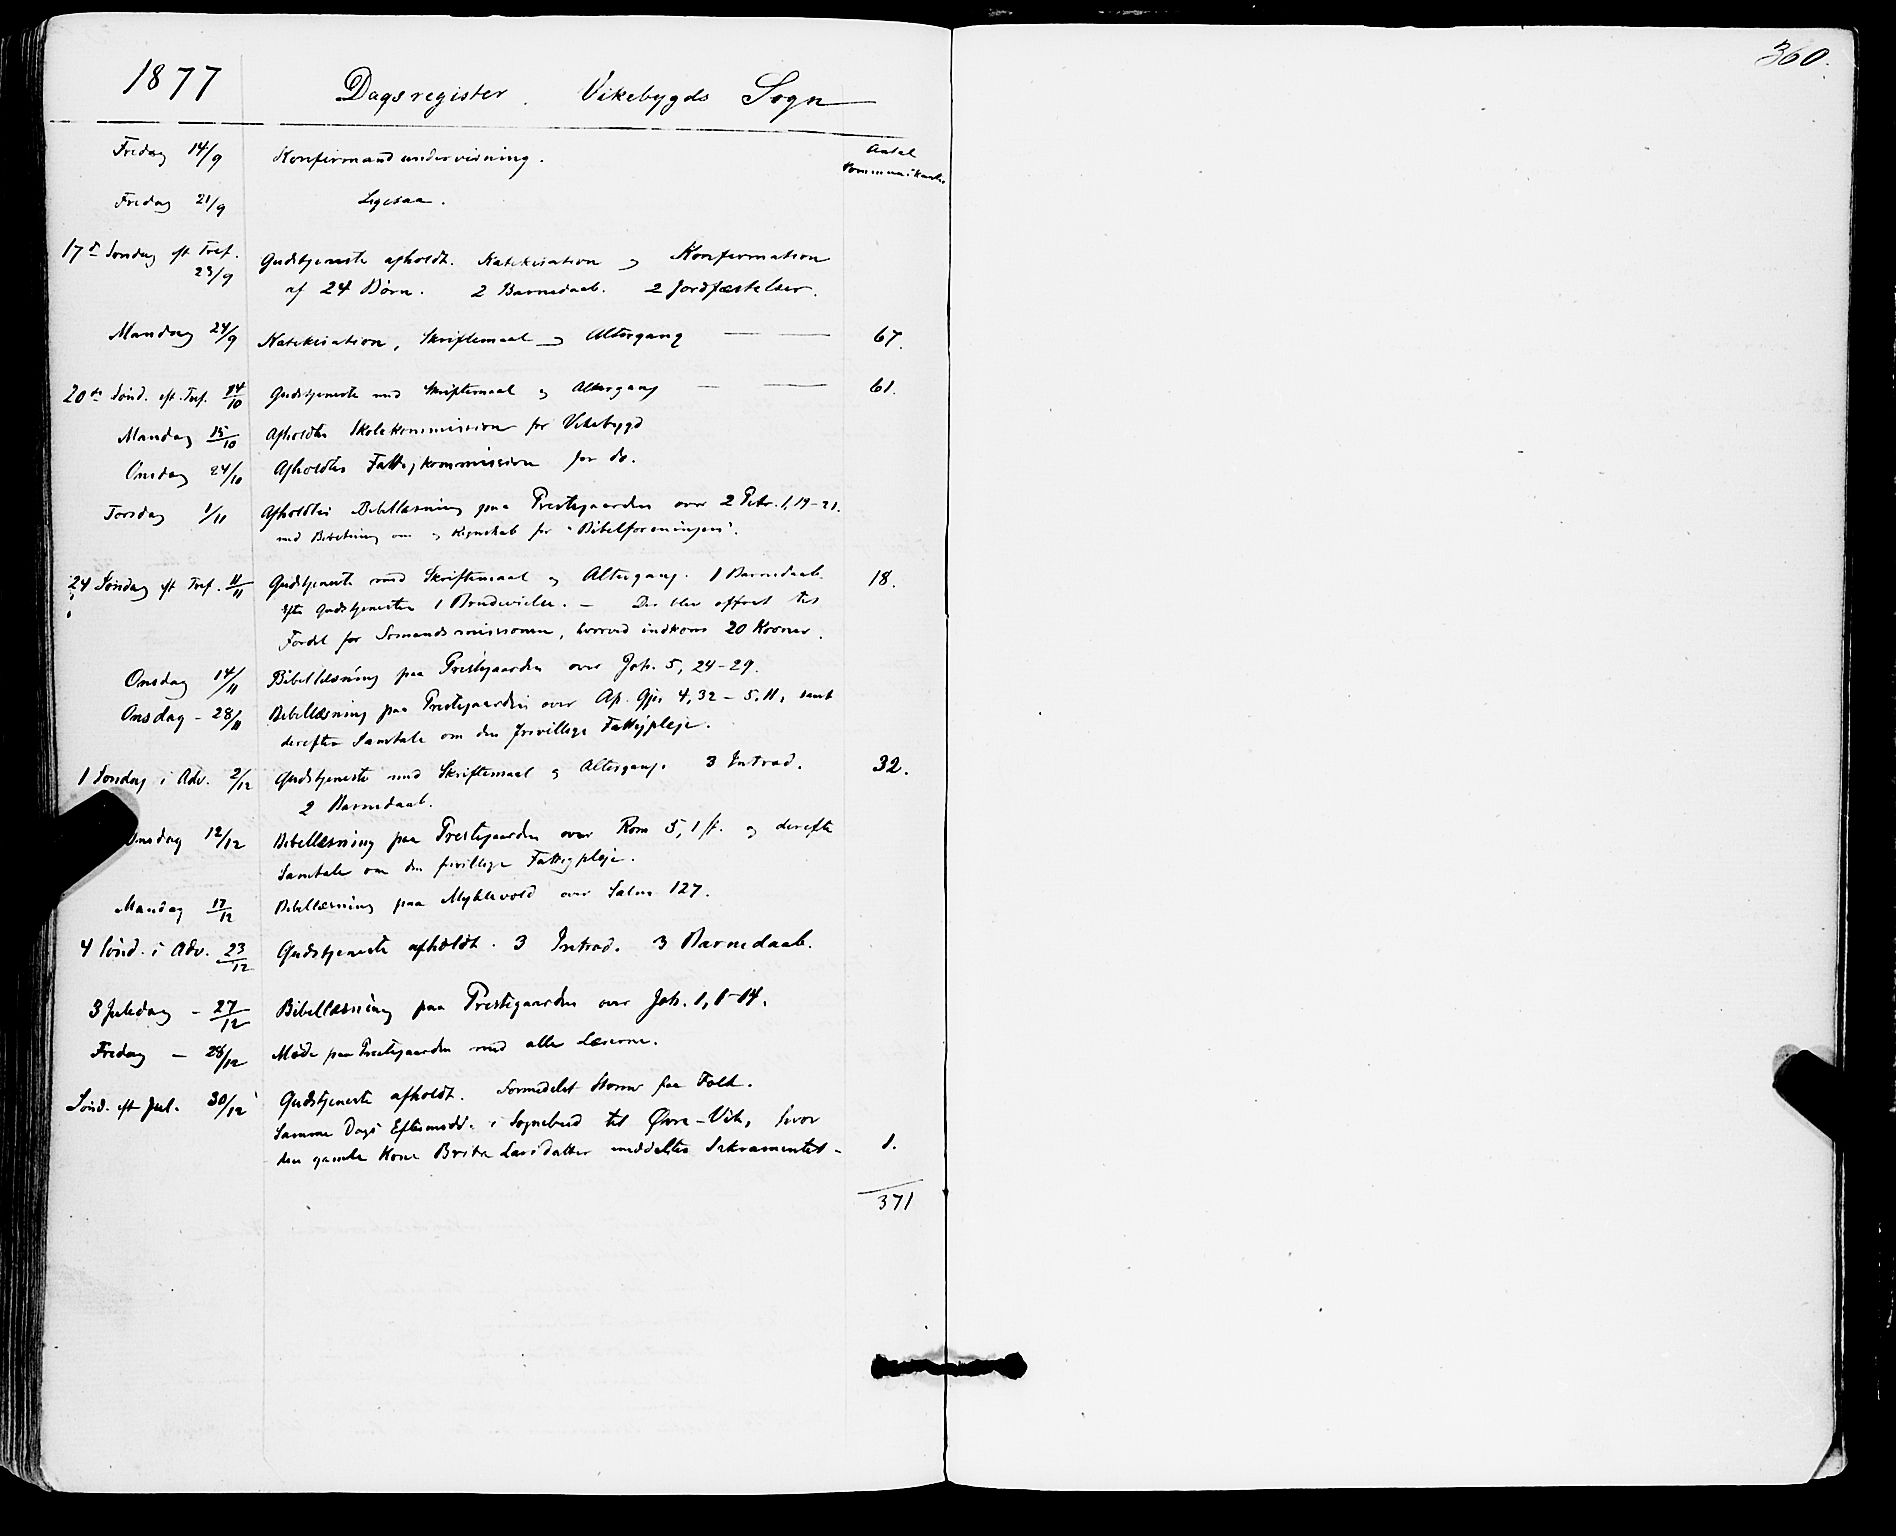 360.
1877 Dagsregister. Vikebygds Sogn
Antal
Kommunikanter
Fredag 14/9 Konfirmandundervisning.
Fredag 21/9 Ligesaa.
17de Søndag eft Tref. 23/9 Gudstjeneste afholdt. Katekisation og Konfirmation
af 24 Børn. 2 Barnedaab. 2 Jordfæstelser.
Mandag 24/9 Katekisation, Skriftemaal og Altergang 67.
20de Sønd. eft. Tref. 14/10 Gudstjeneste med Skriftemaal og Altergang 61.
Mandag 15/10 Afholdtes Skolekommission for Vikebygd
Onsdag 24/10 Afholdtes Fattigkommission for do.
Torsdag 1/11 Afholdtes Bibellæsning paa Prestegaarden over 2 Petr. 1, 19-21.
med Beretning om og Regnskab for "Bibelforeningen".
24 Søndag eft Tref. 11/11 Gudstjeneste med Skriftemaal og Altergang. 1 Barnedaab. 18.
Efter Gudstjenesten 1 Brudevielse. - Der blev offret til
Fordel for Sømandsmissionen, hvorved indkom 20 Kroner.
Onsdag 14/11 Bibellæsning paa Prestegaarden over Joh. 5, 24-29.
Onsdag - 28/11 Bibellæsning paa Prestegaarden over Ap. Gjr. 4, 32 - 5, 11, samt
derefter Samtale om den frivillige Fattigpleje.
1 Søndag i Adv. 2/12 Gudstjeneste med Skriftemaal og Altergang. 3 Introd. 32.
2 Barnedaab.
Onsdag 12/12 Bibellæsning paa Prestegaarden over Rom 5, 1 ff. og derefter
Samtale om den frivillige Fattigpleje.
Mandag 17/12 Bibellæsning paa Myklevold over Salme 127.
4 Sønd. i Adv. 23/12 Gudstjeneste afholdt. 3 Introd. 3 Barnedaab.
3 Juledag - 27/12 Bibellæsning paa Prestegaarden over Joh. 1, 1-14.
Fredag - 28/12 Møde paa Prestegaarden med alle Lærerne.
Sønd. eft Jul. 30/12 Gudstjeneste afholdt. Formedelst Storm faa Folk.
Samme Dags Eftermidd. i Sognebud til Øvre-Vik, hvor
den gamle Kone Brita Larsdatter meddeltes Sakramentet - 1.
371